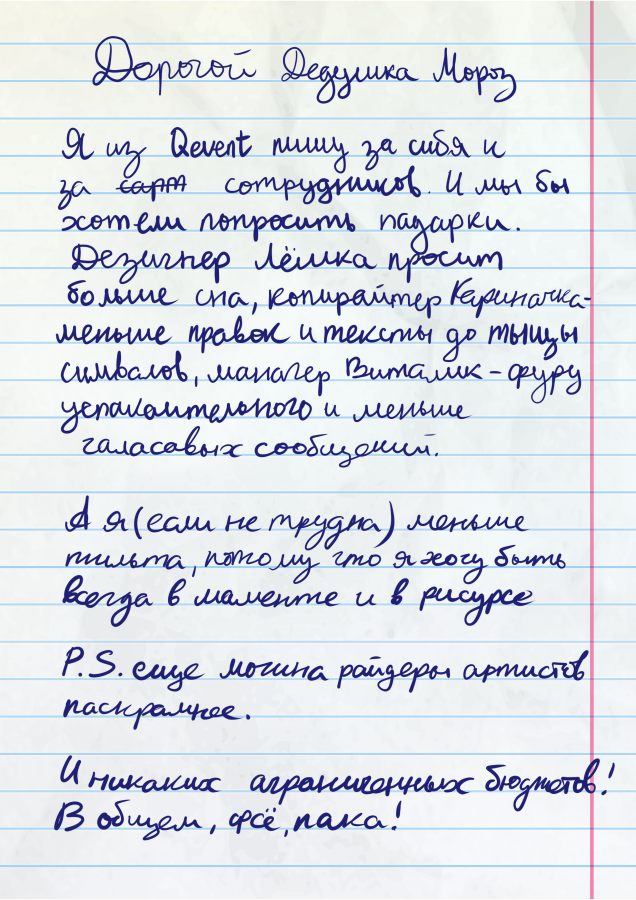 Дорогой Дедушка Мороз
Я из Qevent пишу за сибя и
за сотрудников. И мы бы
хотели попросить падарки.
Дезигнер Лёшка просит
больше сна, копирайтер Кариначка-
меньше правок и тексты до тыщы
симвалов, манагер Виталик - фуру
успакаительного и меньше
галасавых сообщений.
А я (если не трудна) меньше
тильта, потому что я хочу быть
всегда в маменте и в рисурсе
P.S. еще можна райдеры артистов
паскрамнее.
И никаких аграниченных бюджетов!
В общем, фсё, пака!